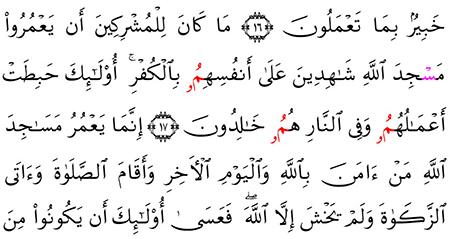 خَبِيرُۢ بِمَا تَعْمَلُونَ ﴿١٦﴾ مَا كَانَ لِلْمُشْرِكِينَ أَن يَعْمُرُواْ
مَسْجِدَ اللَّهِ شَٰهِدِينَ عَلَىٰ أَنفُسِهِمُۥ بِالْكُفْرِۚ أُوْلَٰٓئِكَ حَبِطَتْ
أَعْمَٰلُهُمُۥ وَفِي النَّارِ هُمُۥ خَٰلِدُونَ ﴿١٧﴾ إِنَّمَا يَعْمُرُ مَسَٰجِدَ
اللَّهِ مَنْ ءَامَنَ بِاللَّهِ وَالْيَوْمِ الْأَخِرِ وَأَقَامَ الصَّلَوٰةَ وَءَاتَى
الزَّكَوٰةَ وَلَمْ يَخْشَ إِلَّا اللَّهَۖ فَعَسَىٰ أُوْلَٰٓئِكَ أَن يَكُونُواْ مِنَ